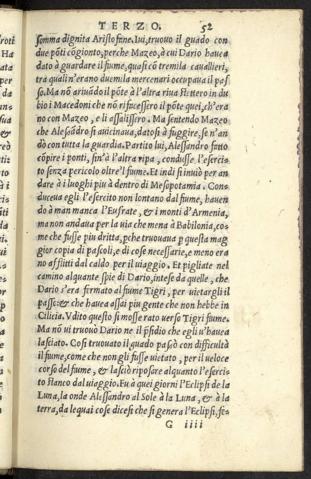 TERZO. 52
somma dignita Aristofine. lui, truouo il guado con
due pōti cōgionto, perche Mazeo, à cui Dario hauea
dato à guardare il fiume, quasi cō tremila cauallieri,
tra quali n'erano duemila mercenari occupaua il pas
so. Ma nō ariuādo il pōte à l'altra riua stettero in du
bio i Macedoni che nō rifucessero il pōte quei, ch'era
no con Mazeo, e li assalissoro. Ma sentendo Mazeo
che Alessādro si auicinaua, datosi à fuggire, se n'an
dò con tutta la guardia. Partito lui, Alessandro fatto
cōpire i ponti, fin'à l'altra ripa, condusse l'eserci-
to senza pericolo oltre'l fiume. Et indi si inuiò per an
dare à i luoghi più à dentro di Mesopotamia. Con-
duceua egli l'esercito non lontano dal fiume, hauen
do à man manca l'Eufrate, & i monti d'Armenia,
ma non andaua per la uia che mena à Babilonia, co-
me che fusse piu dritta, pche truouaua p questa mag
gior copia di pascoli, e di cose necessarie, e meno era
no afflitti dal caldo per il uiaggio. Et pigliate nel
camino alquante spie di Dario, intese da quelle, che
Dario s'era firmato al fiume Tigri, per uietargli il
passo: & che hauea assai piu gente che non hebbe in
Cilicia. Vdito questo si mosse rato uerso Tigri fiume.
Ma nō ui truouò Dario ne il p̄sidio che egli u'hauea
lasciato. Cosi truouato il quado passò con difficultà
il fiume, come che non gli fusse uietato, per il ueloce
corso del fiume, & lasciò riposare alquanto l'eserci-
to stanco dal uiaggio. Fu à quei giorni l'Eclipsi de la
Luna, la onde Alessandro al Sole à la Luna, & à la
terra, da lequai cose dicesi che si genera l'Eclipsi, fe-
G iiii